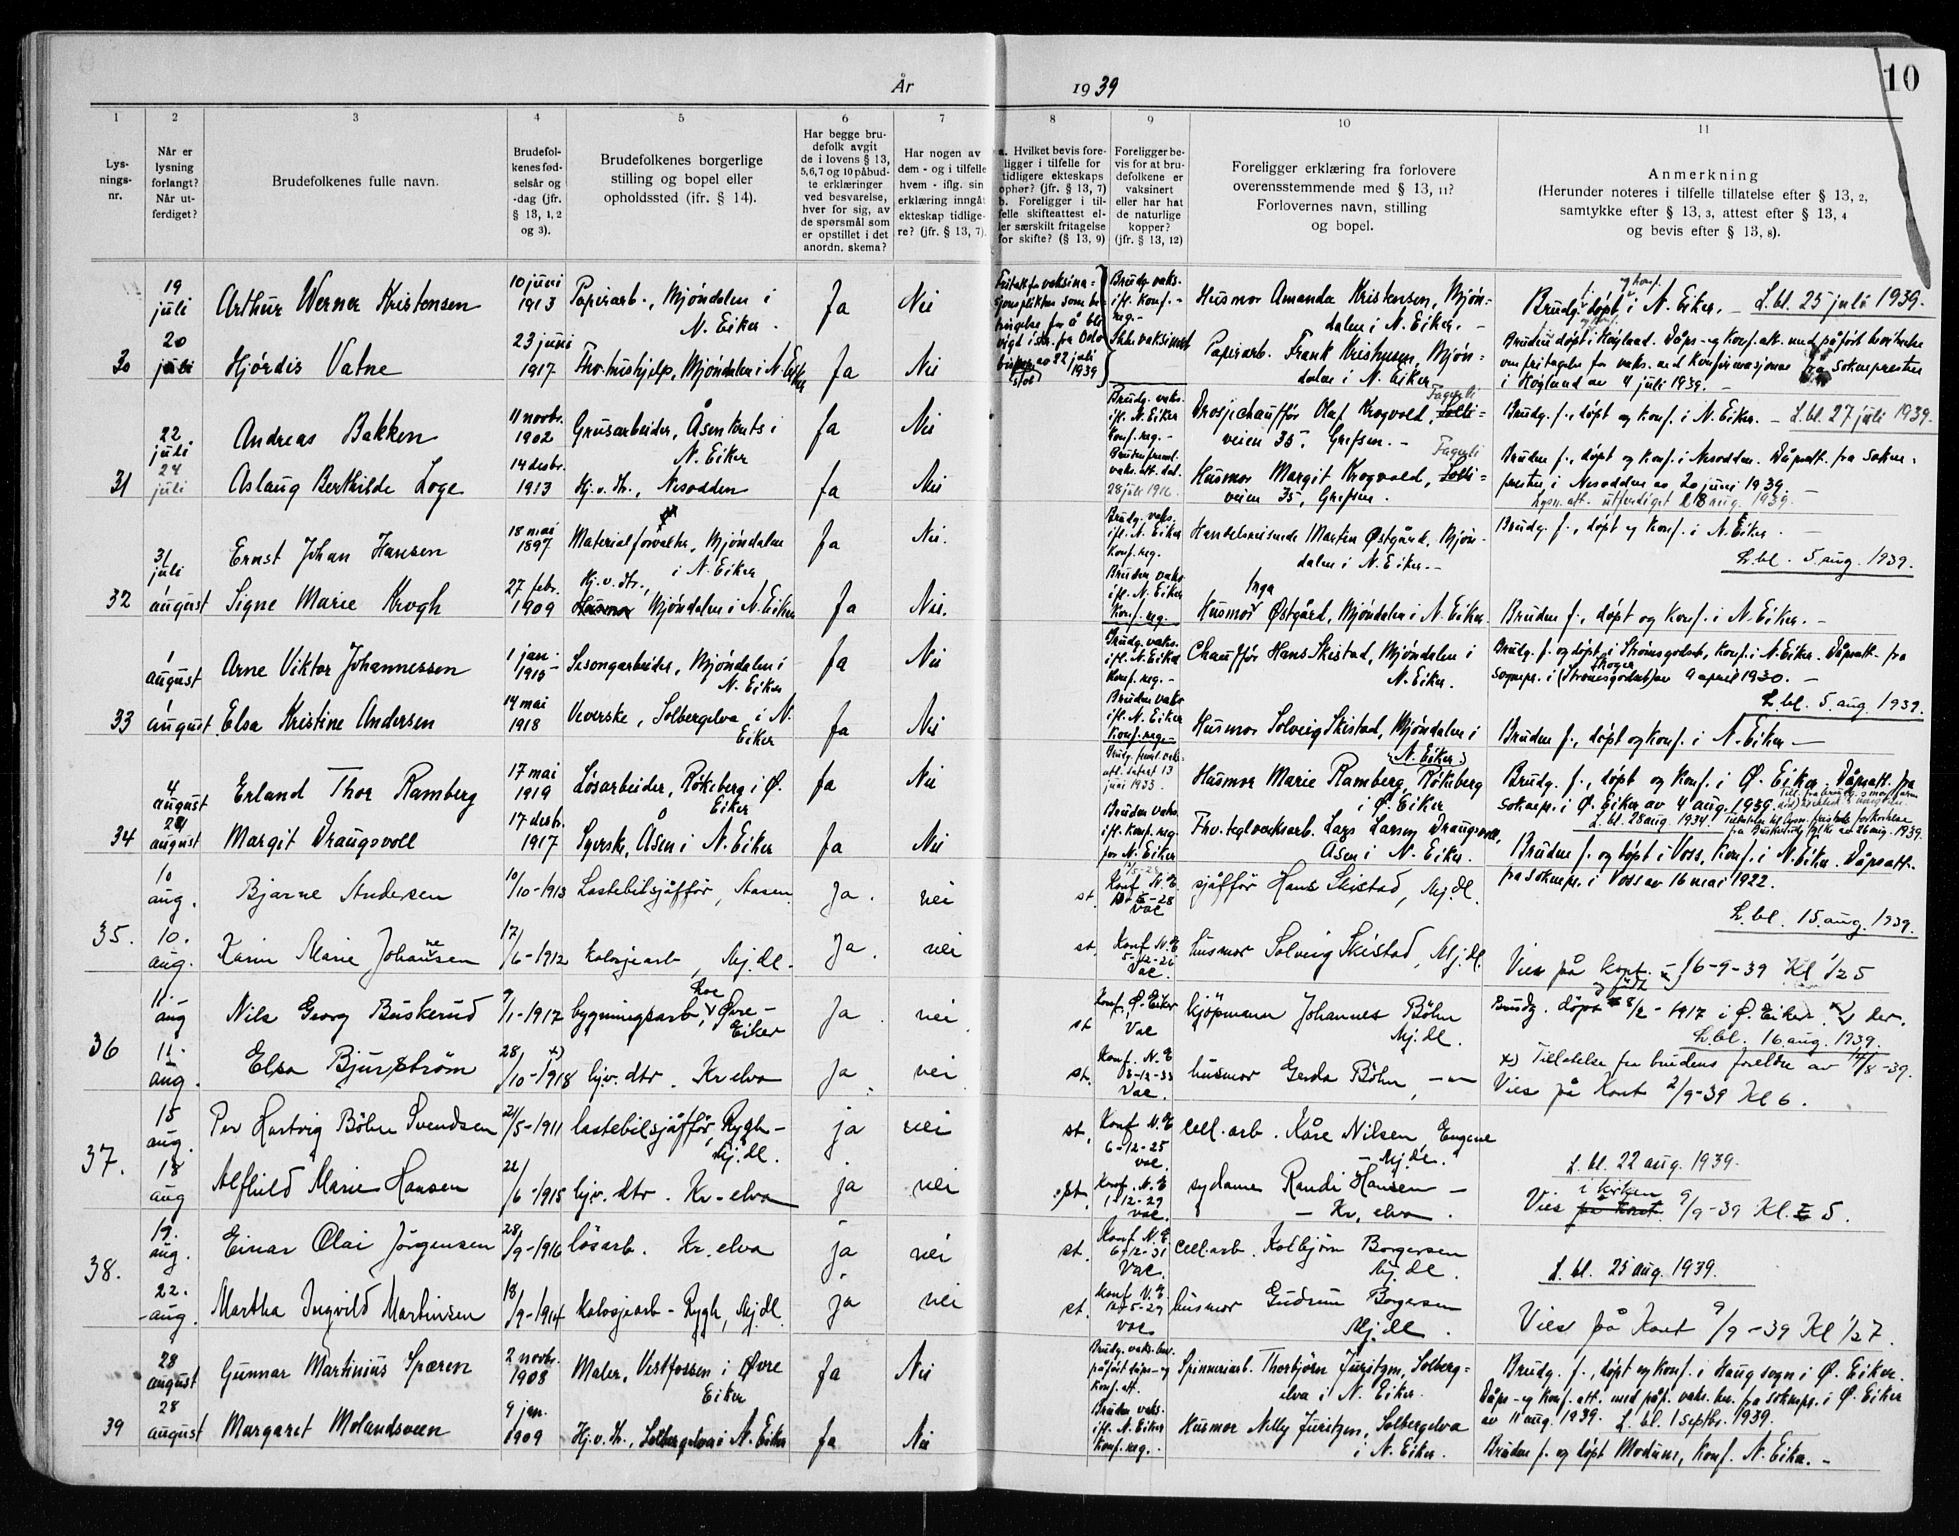 År 1939
10
1 2 3 4 5 6 7 8 9 10 11
Lys-
nings-
nr.
Når er
lysning
forlangt?
Når ut-
ferdiget?
Brudefolkenes fulle navn.
Brudefol-
kenes fød-
selsår og
-dag (jfr.
§ 13, 1, 2
og 3).
Brudefolkenes borgerlige
stilling og bopel eller
opholdssted (ifr. § 14).
Har begge bru-
defolk avgit
de i lovens § 13,
5,6,7 og 10 påbud-
te erklæringer
ved besvarelse,
hver for sig, av
de spørsmål som
er opstillet i det
anordn. skema?
Har nogen av
dem - og i tilfelle
hvem - iflg. sin
erklæring inngåt
ekteskap tidlige-
re? (jfr. § 13, 7).
a. Hvilket bevis fore-
ligger i tilfelle for
tidligere ekteskaps
ophør? (jfr. § 13, 7)
b. Foreligger i til-
felle skifteattest el-
ler særskilt fritagelse
for skifte? (§ 13, 9)
Foreligger be-
vis for at bru-
defolkene er
vaksinert
eller har hat
de naturlige
kopper?
(jfr. § 13, 12)
Foreligger erklæring fra forlovere
overensstemmende med § 13, 11?
Forlovernes navn, stilling
og bopel.
Anmerkning
(Herunder noteres i tilfelle tillatelse efter § 13, 2,
samtykke efter § 13, 3, attest efter § 13, 4
og bevis efter § 13, 8).
19 juli
Arthur Werner Kristensen
10 juni 1913
Papirarb., Mjöndalen i
N. Eiker.
Ja
Nei
Brudg. vaks.
ifl. Konf.-
reg. -
Husmor Amanda Kristensen, Mjön-
dalen i N. Eiker. -
Brudg. f., döpt og konf. i N. Eiker. - L. bl. 25 juli 1939.
30
20 juli
Hjördis Vatne
23 juni 1917
Fhv. hushjelp, Mjöndalen i N. Eiker
Ja
Nei
Fritakt fra vaksina-
22 juli 1939
Ikke vaksinert
Papirarb. Frank Kristensen, Mjön-
dalen i N. Eiker
Bruden döpt i Högland. Dåps- og Konf. att. med påfört
om fritagelse for vaks. ved Konfirmasjonen fra soknepresten
i Högland av 4 juli 1939. -
22 juli
Andreas Bakken
11 novbr. 1902
Grusarbeider, Åsen krets i
N. Eiker
Ja
Nei
Brudg. vaks.
ifl. N. Eiker
Konf. reg. -
Drosjechaufför Olaf Krogvold, Fagerli
veien 35, Grefsen. -
Brudg. f., döpt og Konf. i N. Eiker. - L. bl. 27 juli 1939.
31
24 juli
Aslaug Berthilde Loge
14 desbr. 1913
Hj. v. Str., Nesodden
Ja
Nei
Bruden freml.
vaks. att. dat.
28 juli 1916.
Husmor Margit Krogvold, Fagerli
veien 35, Grefsen.
Bruden f., döpt og Konf. i Nesodden. Dåpsatt. fra sokne-
presten i Nesodden av 20 juni 1939. -
Lysn. att. utferdiget 18 aug. 1939.
31 juli
Ernst Johan Hansen
18 mai 1897
Materialforvalter, Mjöndalen
i N. Eiker
Ja
Nei.
Brudg. vaks.
ifl. N. Eiker
Konf. reg.
Handelsreisende Martin Östgård, Mjön-
dalen i N. Eiker. -
Brudg. f., döpt og Konf. i N. Eiker. -
L. bl. 5. aug. 1939.
32
1 august
Signe Marie Krogh
27 febr. 1909
Hj. v. Str.,
Husmor Mjöndalen i N. Eiker
Ja
Nei.
Bruden vaks
ifl. N. Eiker
Konf. reg.
Husmor Inga Östgård, Mjöndalen i N. Eiker.
Bruden f., döpt og Konf. i N. Eiker. -
1 august
Arne Viktor Johannessen
1 jan. 1915
Sesongarbeider, Mjöndalen i
N. Eiker
Ja
Nei
Brudg. vaks.
ifl. N. Eiker
Konf. reg. -
Chaufför Hans Skistad, Mjöndalen i
N. Eiker.
Brudg. f. og döpt i Strömsgodset, Konf. i N. Eiker. Dåpsatt. fra
sognepr. i Skoger (Strömsgodset) av 9 april 1930. -
L. bl. 5. aug. 1939.
33
1 august
Elsa Kristine Andersen
14 mai 1918
Veverske, Solbergelva i N.
Eiker
Ja
Nei
Bruden vaks
ifl. N. Eiker
Konf. reg. -
Husmor Solveig Skistad, Mjöndalen i
N. Eiker.
Bruden f., döpt og Konf. i N. Eiker -
4 august
Erland Thor Ramberg
17 mai 1919
Lösarbeider, Rökeberg i Ö.
Eiker
Ja
Nei
Brudg. freml. vaks-
att. datert 13
juni 1933
Husmor Marie Ramberg, Rökeberg
i Ö. Eiker
Brudg. f., döpt og Konf. i Ö. Eiker. Dåpsatt. fra
soknepr. i Ö. Eiker av 4 aug. 1939.
L. bl. 28 aug. 1939.
fra Buskerud fylke av 26 aug. 1939.
34
24 august
Margit Draugsvoll
17 desbr. 1917
Syerske, Åsen i N. Eiker
Ja
Nei
Bruden vaks
ifl. Konf. reg.
for N. Eiker
Fhv. teglverksarb. Lars Larsen Draugsvoll,
Åsen i N. Eiker.
Bruden f. og döpt i Voss, Konf. i N. Eiker. Dåpsatt.
fra soknepr. i Voss av 16 mai 1922.
10 aug.
Bjarne Andersen
10/10-1913
Lastebilsjåffør, Aasen
Ja.
nei
st.
Konf. N. E
28
Vac
sjåffør Hans Skistad, Mj.dl.
L. bl. 15. aug. 1939.
35.
10. aug.
Karin Marie Johannesen
17/6-1912
kalosjearb, Mj.dl.
Ja.
nei
st.
Konf N. E
5-12-26
Vac.
husmor Solveig Skistad, Mj.dl.
Vies på kont. - 16-9-39 Kl 1/2 5
11. aug
Nils Georg Buskerud
9/1-1917
bygningsarb, Hoe Øvre-
Eiker
Ja.
nei.
st
Konf. Ø. Eiker
Vac
kjöpmann Johannes Böhn
Mj.dl.
Brudg. döpt og födt 8/2-1917 i Ø. Eiker.
L. bl. 16 aug. 1939.
36
11. aug.
Elsa Bjurström
28/10-1918 x)
hjv. dtr. Kr elva
Ja.
nei.
st.
Konf. N. E
3-12-33
Vac.
husmor Gerda Böhn, -"-
x) Tillatelse fra brudens foreldre av 14/8-39.
Vies på Kont 2/9-39 Kl 6.
15 aug.
Per Hartvig Böhn Svendsen
21/5-1911
lastebilsjåfför, Rygh-
Mj.dl.
ja
nei
st.
Konf N. E
6-12-25
vac.
cell.arb. Kåre Nilsen, Eugene
- Mj.dl.
L. bl. 22 aug. 1939.
37.
18 aug
Alfhild Marie Hansen
22/6-1915
hjv. dtr. Kr-elva
ja
nei
st.
Konf. N. E
1-12-29
vac.
sydame Randi Hansen -
- Kr. elva.
Vies i kirken på Kont. 9/9-39 Kl. 5.
19. aug.
Einar Olai Jörgensen
28/9-1916
lösarb. Kr. elva
ja
nei
st.
Konf N. E
6-12-31
Vac.
Cell.arb. Kolbjörn Borgersen
Mj.dl.
L. bl. 25 aug. 1939.
38.
22. aug.
Martha Ingvild Martinsen
18/9-1914
Kalosjearb - Rygh, Mj.dl.
ja
nei
st.
Konf N. E
5-29
vac.
husmor Gudrun Borgersen
Mj.dl.
Vies på Kont 9/9-39 Kl 1/2 7.
28 august
Gunnar Martinius Spæren
2 novbr. 1908
Maler, Vestfossen i Øvre
Eiker
Ja
Nei
Brudg. vaks. bev.
påfört dåps- og
Konf. att.
Spinneriarb. Thorbjörn Juritzen, Solberg-
elva i N. Eiker.
Brudg. f., döpt og Konf. i Haug sogn i Ö. Eiker.
Dåps- og Konf. att. med påf. vaks. bev. fra soknepr. i Ö. Eiker
av 11 aug. 1939. L. bl. 1 septbr. 1939.
39
28 august
Margaret Molandsveen
9 jan. 1909
Hj. v. Str., Solbergelva i N. Eiker
Ja
Nei
Bruden vaks.
ifl. N. Eiker
Konf. reg.
Husmor Nelly Juritzen, Solbergelva
i N. Eiker.
Bruden f. og döpt Modum, Konf. N. Eiker. -